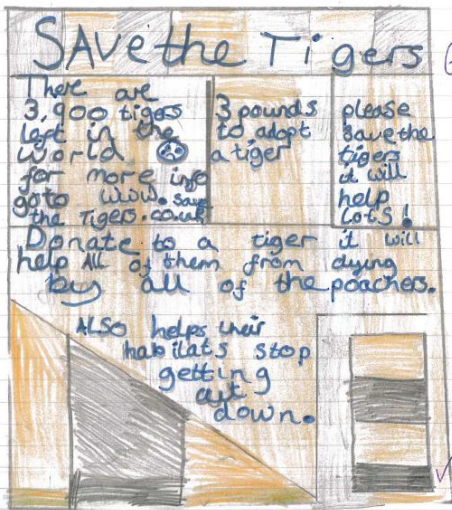 SAVe the TigerS
There are
3,900 tigers
left in the
world
for more info
go to www.save
the Tigers.co.uk
3 pounds
to adopt
a tiger
please
save the
tigers
it will
help
LoTS!
Donate to a tiger it will
help All of them from dying
by all of the poachers.
ALSO helps their
habitats stop
getting
cut
down.